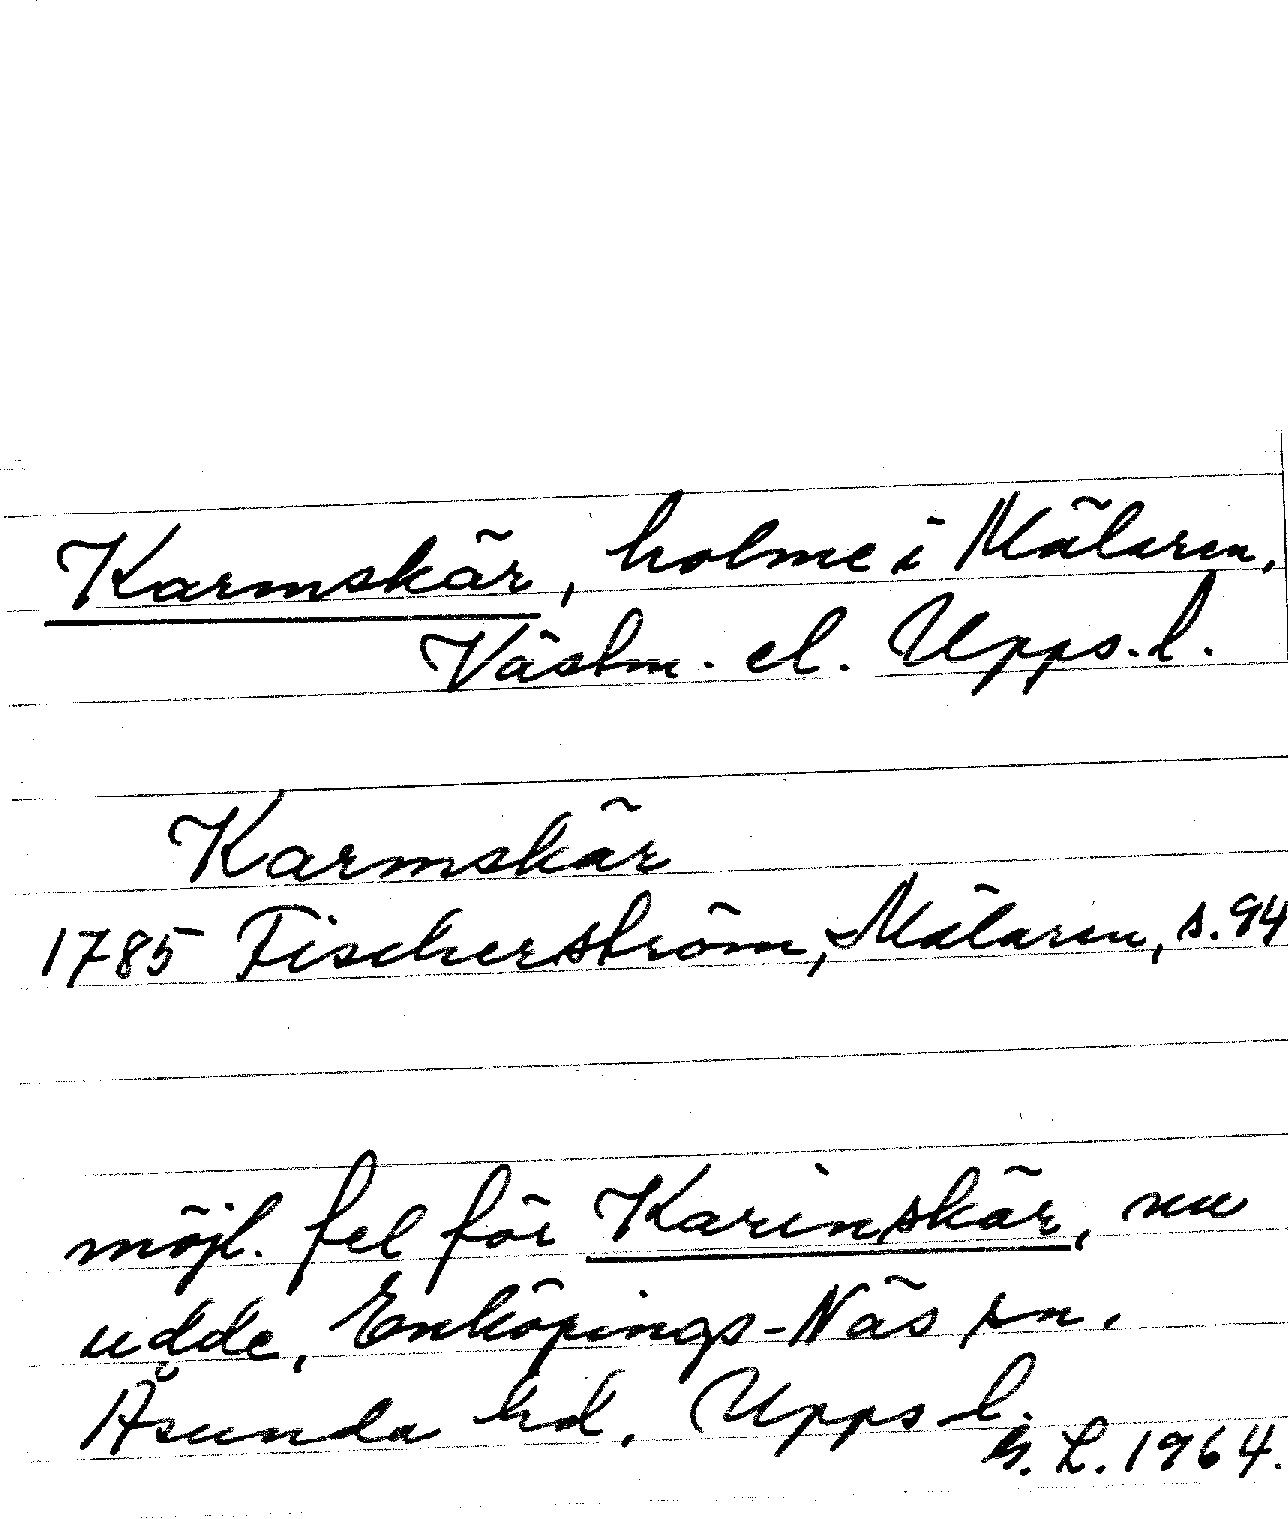 Karmskär, holme i Mälaren,
Västm. el. Upps. l.
Karmskär
1785 Fischerström, Mälaren, s. 94
möjl. fel för Karinskär, nu
udde, Enköpings-Näs sn.
Åsunda hd. Upps. l.
G. L. 1964.